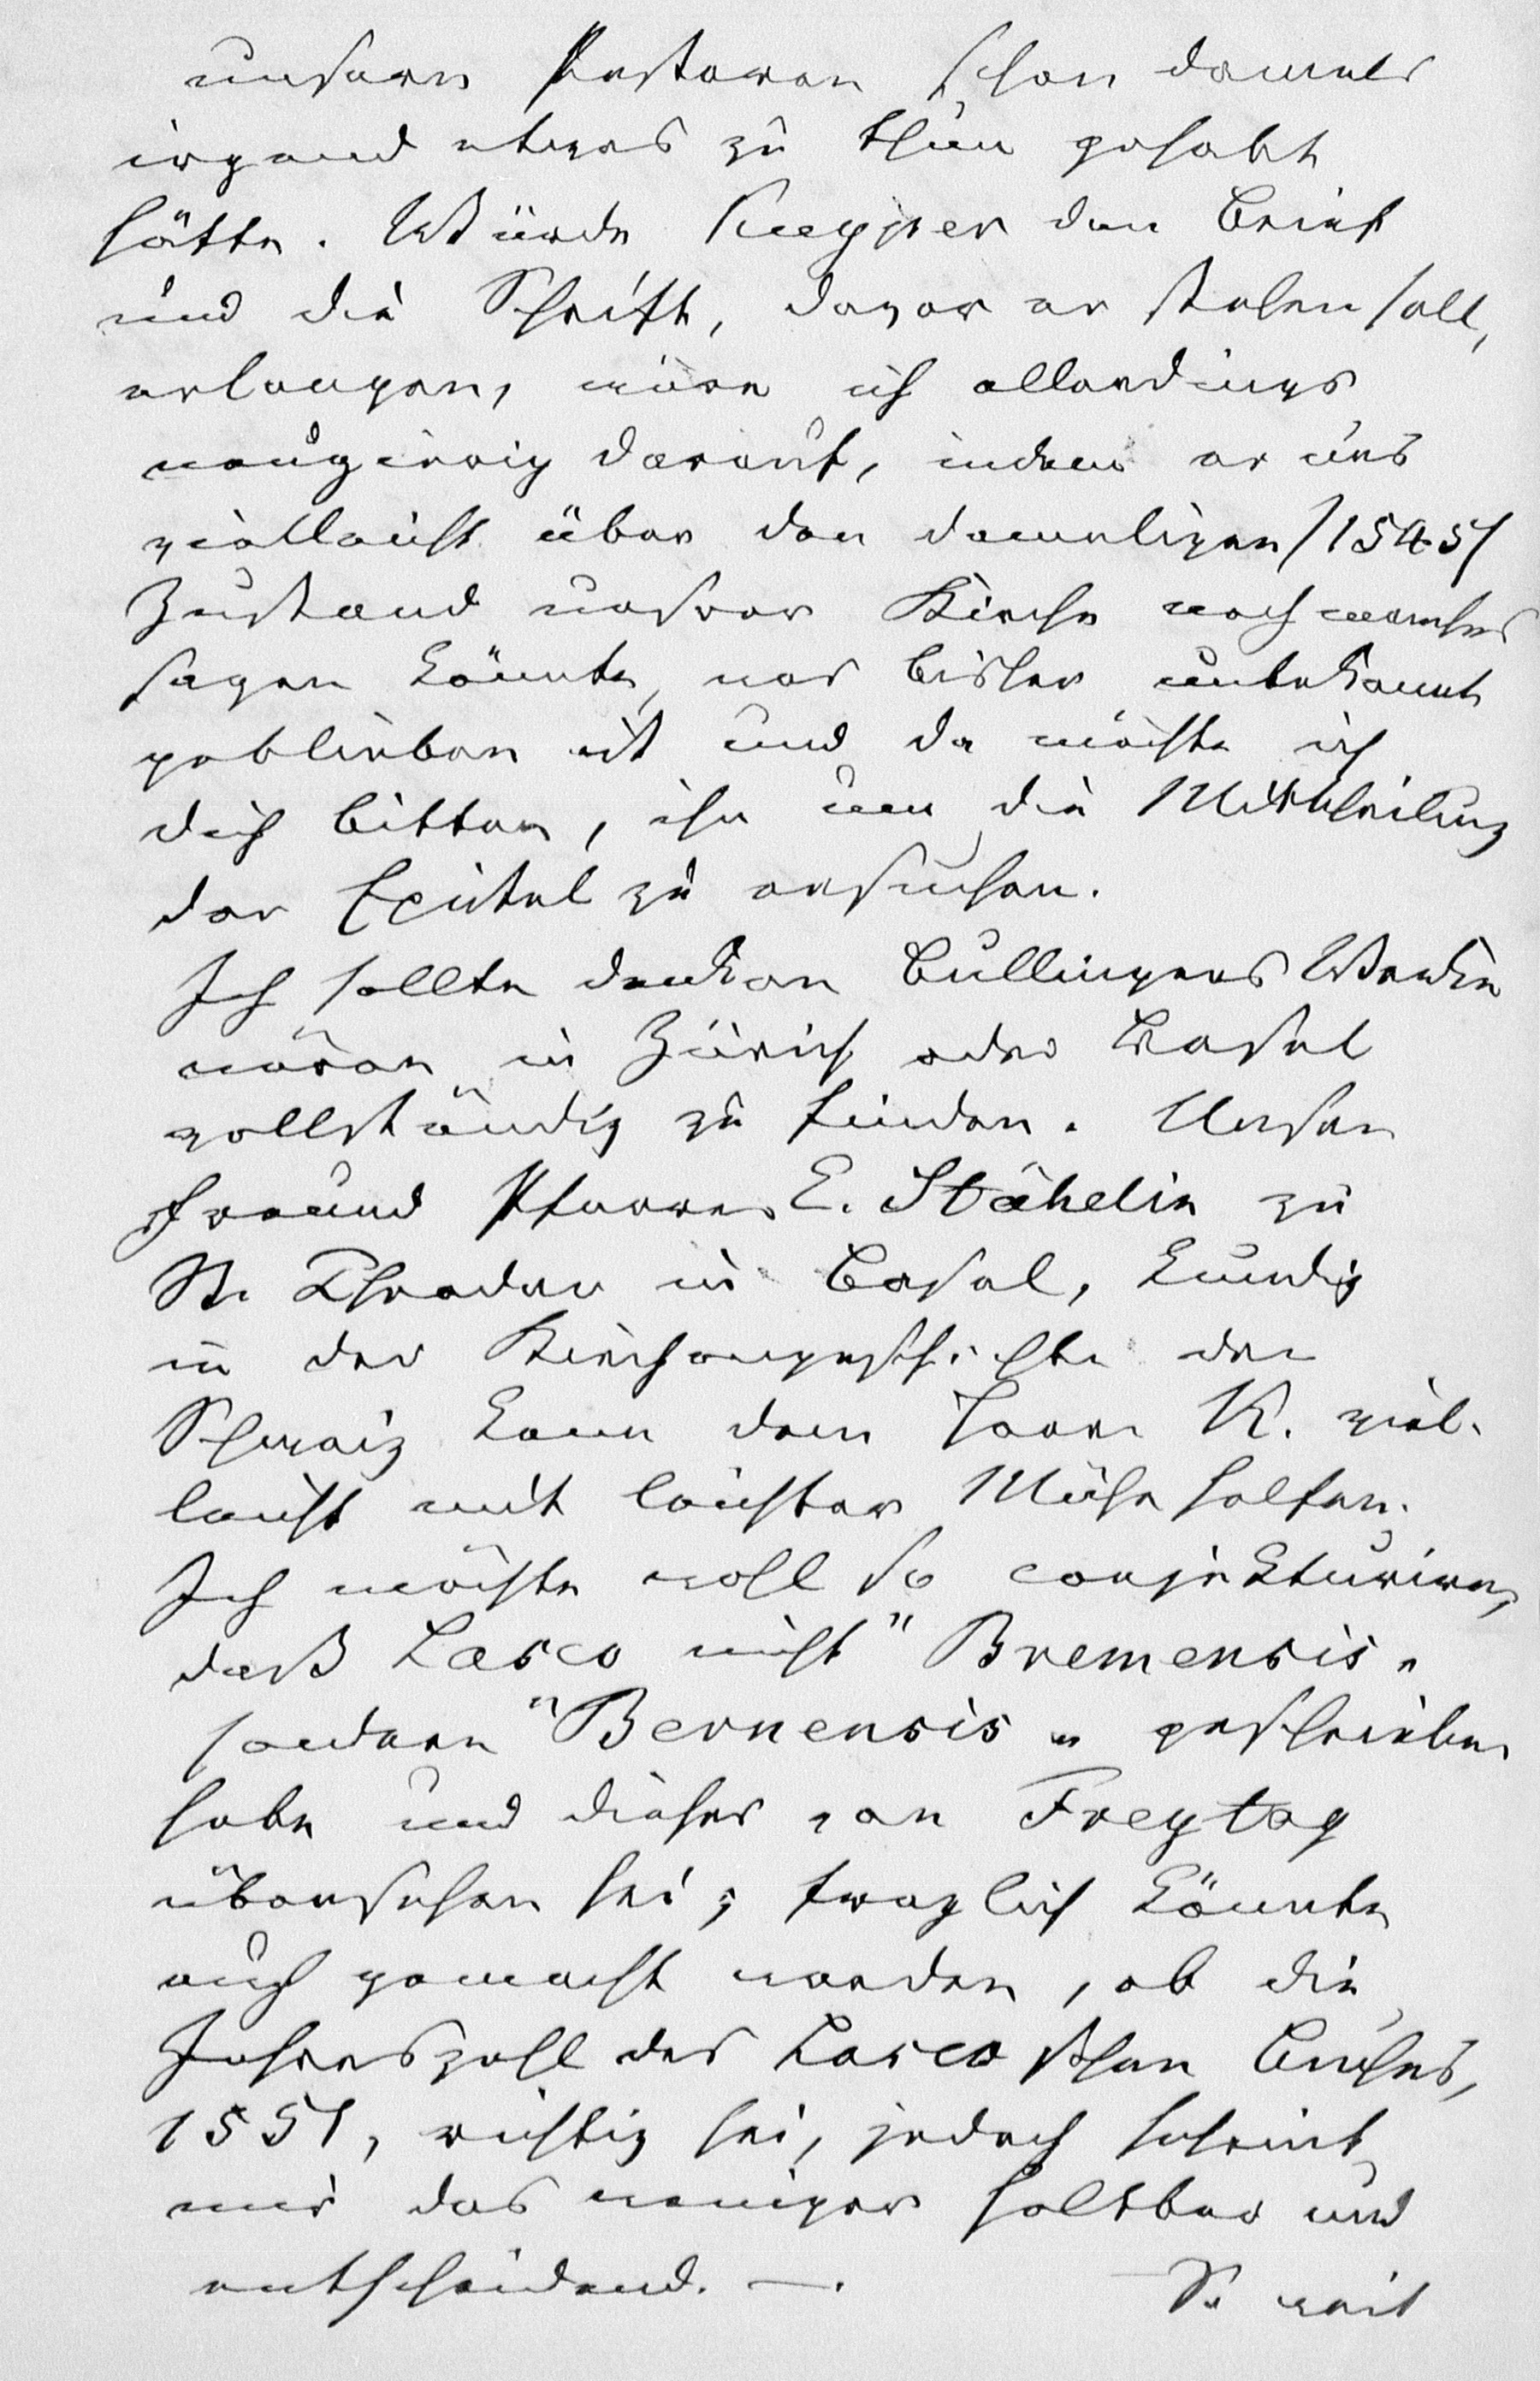 unsern Pastoren schon damals
irgend etwas zu thun gehabt
hätte. Würde Kuyper den Brief
und die Schrift, davor er stehen soll,
erlangen, wäre ich allerdings
neugierig darauf, indem er uns
vielleicht über den damaligen /1545/
Zustand unserer Kirche noch manches
sagen könnte, was bisher unbekannt
geblieben ist und da möchte ich
dich bitten, ihn um die Mittheilung
der Epistel zu ersuchen.
Ich sollte denken Bullingers Werke
wären in Zürich oder Basel
vollständig zu finden. Unser
Freund Pfarrer E. Stähelin zu
St. Theodor in Basel, kundig
in der Kirchengeschichte der
Schweiz kann dem Herrn K. viel-
leicht mit leichter Mühe helfen.
Ich möchte wohl so conjekturiren,
daß Lasco nicht "Bremensis"
sondern "Bernensis" geschrieben
habe und dieses von Freytag
übersehen sei; fraglich könnte
auch gemacht werden, ob die
Jahreszahl des Lascoschen Buches,
1551, richtig sei, jedoch scheint
mir das weniger haltbar und
entscheidend. —.
So weit